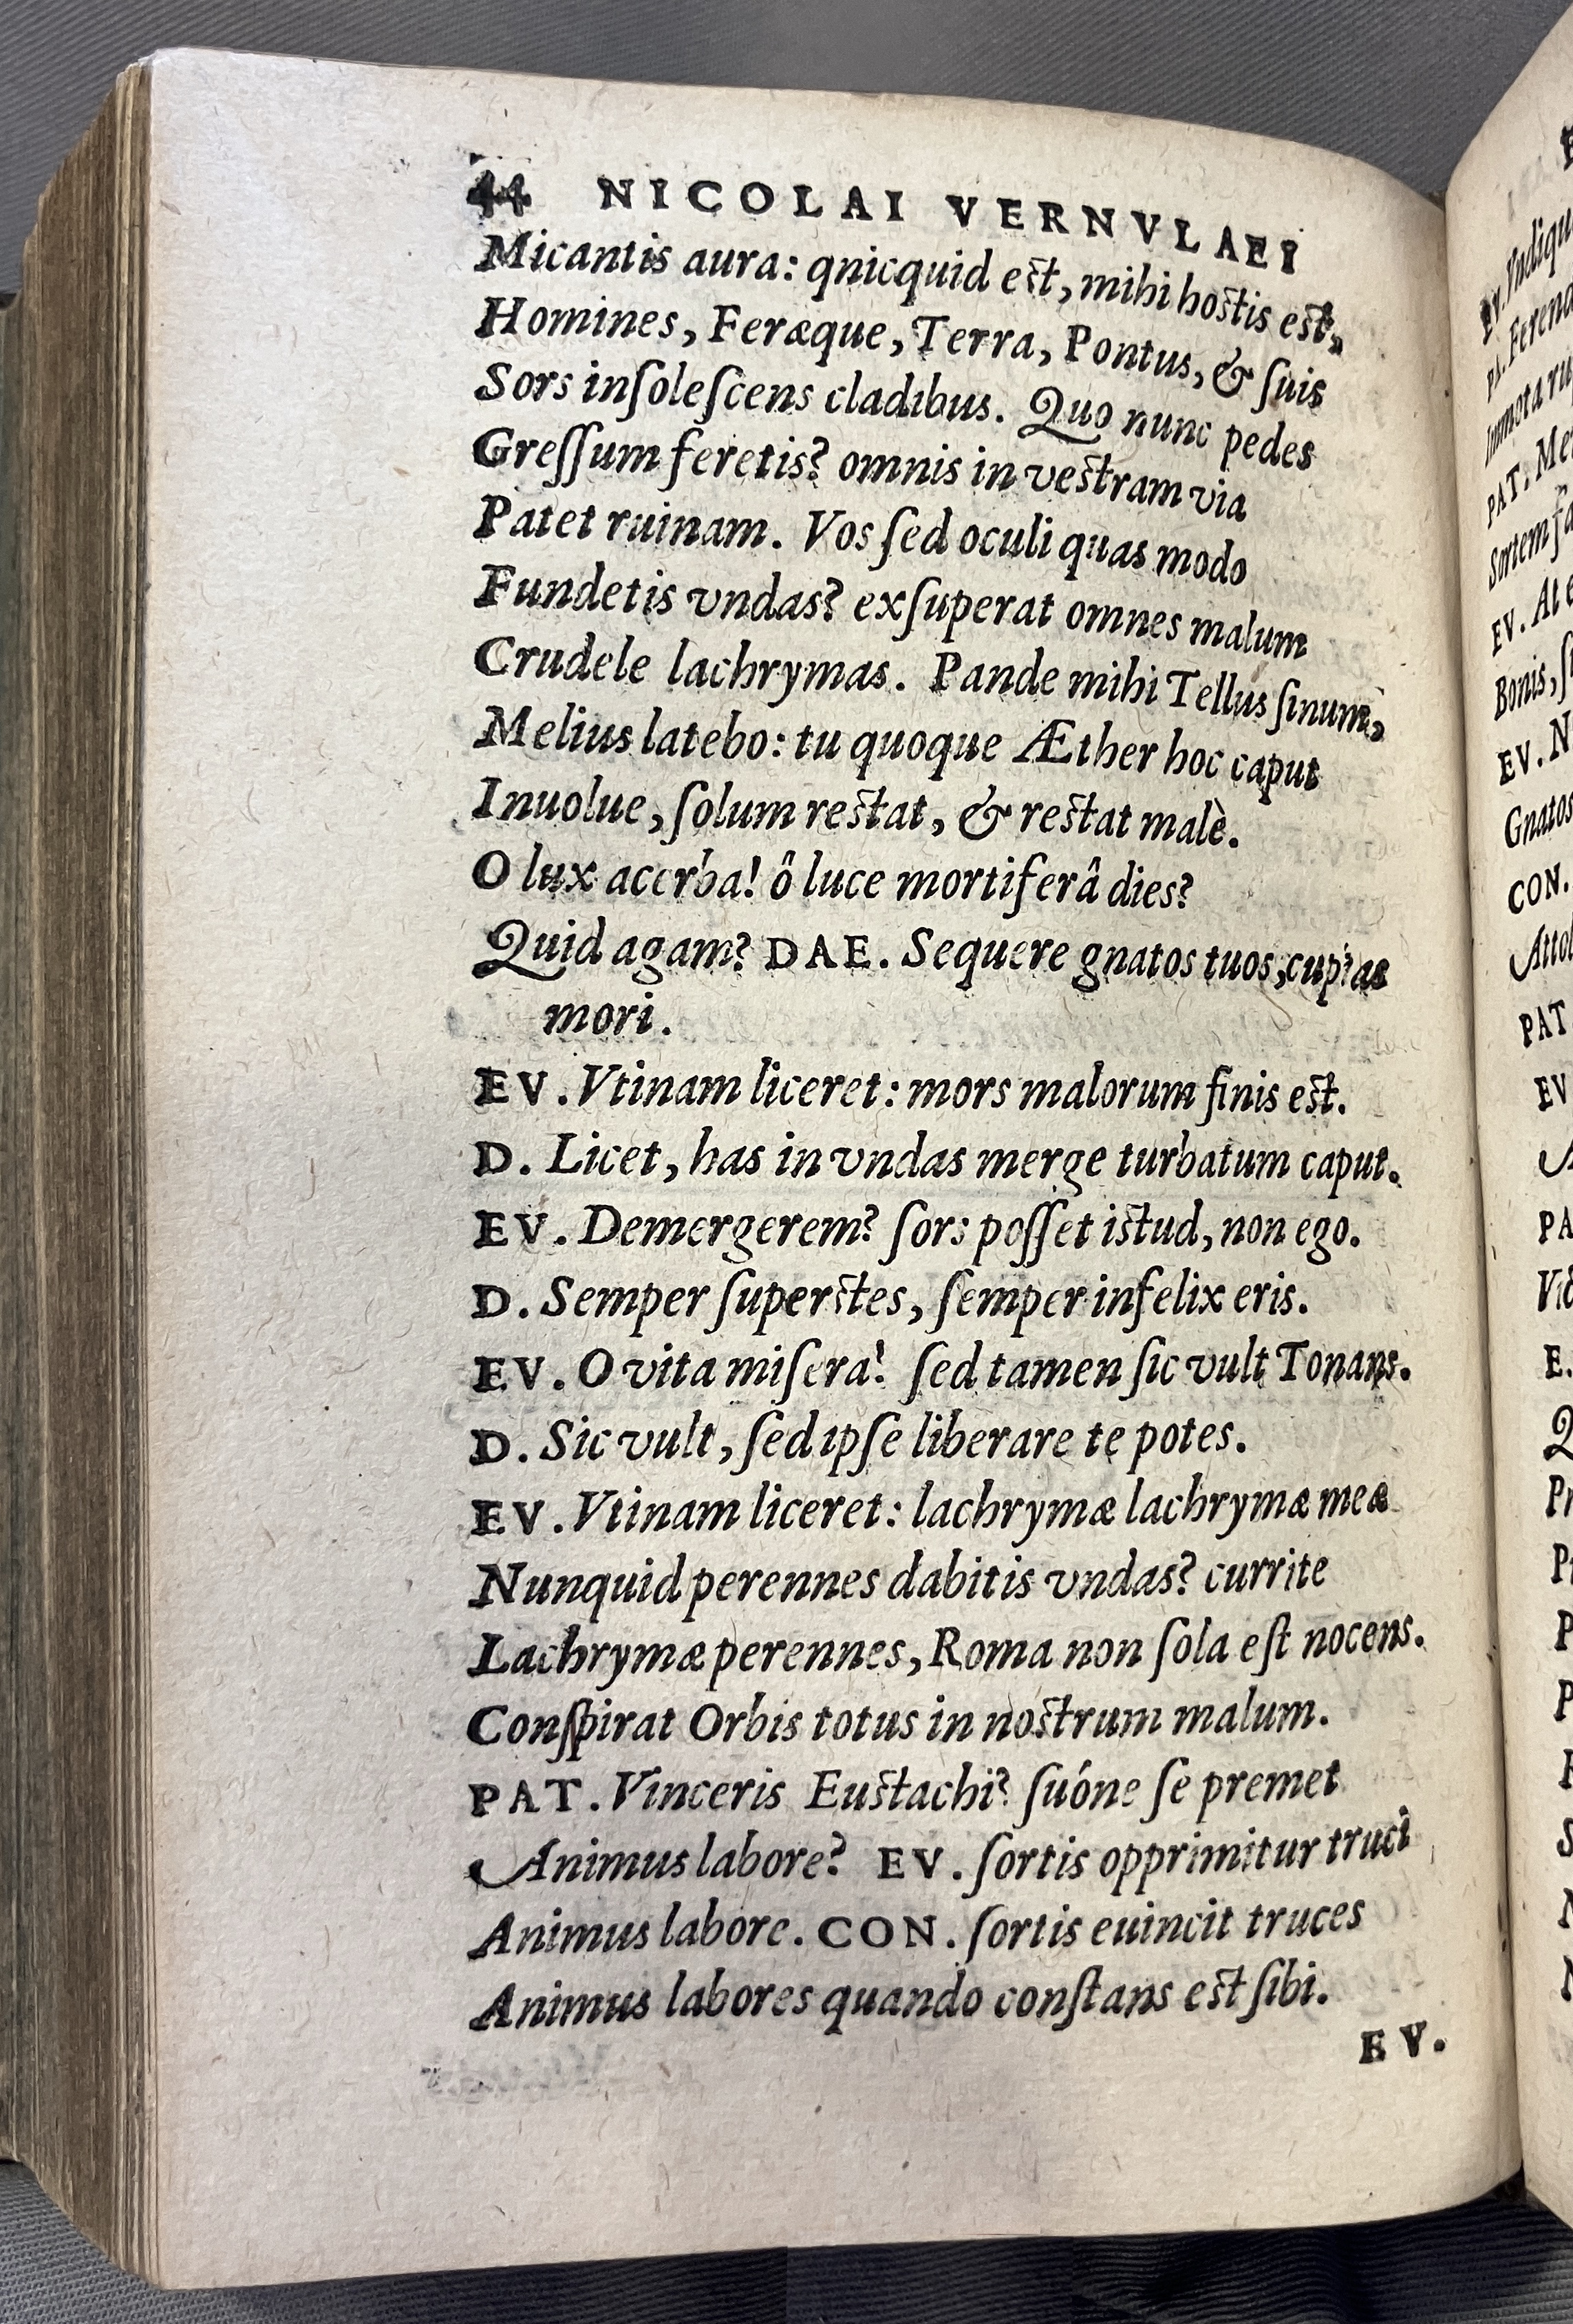 44 NICOLAI VERNVLAEI
Micantis aura: qnicquid est, mihi hostis est,
Homines, Feræque, Terra, Pontus, & ſuis
Sors inſoleſcens cladibus. Quo nunc pedes
Greſſum feretis? omnis in vestram via
Patet ruinam. Vos ſed oculi quas modo
Fundetis vndas? exſuperat omnes malum
Crudele lachrymas. Pande mihi Tellus ſinum,
Melius latebo: tu quoque Æther hoc caput
Inuolue, ſolum restat, & restat malè.
O lux acerba! ô luce mortiferâ dies?
Quid agam? DAE. Sequere gnatos tuos, cupias
mori.
EV. Vtinam liceret: mors malorum finis est.
D. Licet, has in vndas merge turbatum caput.
EV. Demergerem? ſors poſſet istud, non ego.
D. Semper ſuperstes, ſemper infelix eris.
EV. O vita miſera! ſed tamen ſic vult Tonans.
D. Sic vult, ſed ipſe liberare te potes.
EV. Vtinam liceret: lachrymæ lachrymæ meæ
Nunquid perennes dabitis vndas? currite
Lachrymæ perennes, Roma non ſola eſt nocens.
Conſpirat Orbis totus in nostrum malum.
PAT. Vinceris Eustachi? ſuóne ſe premet
Animus labore? EV. ſortis opprimitur truci
Animus labore. CON. ſortis euincit truces
Animus labores quando conſtans est ſibi.
EV.